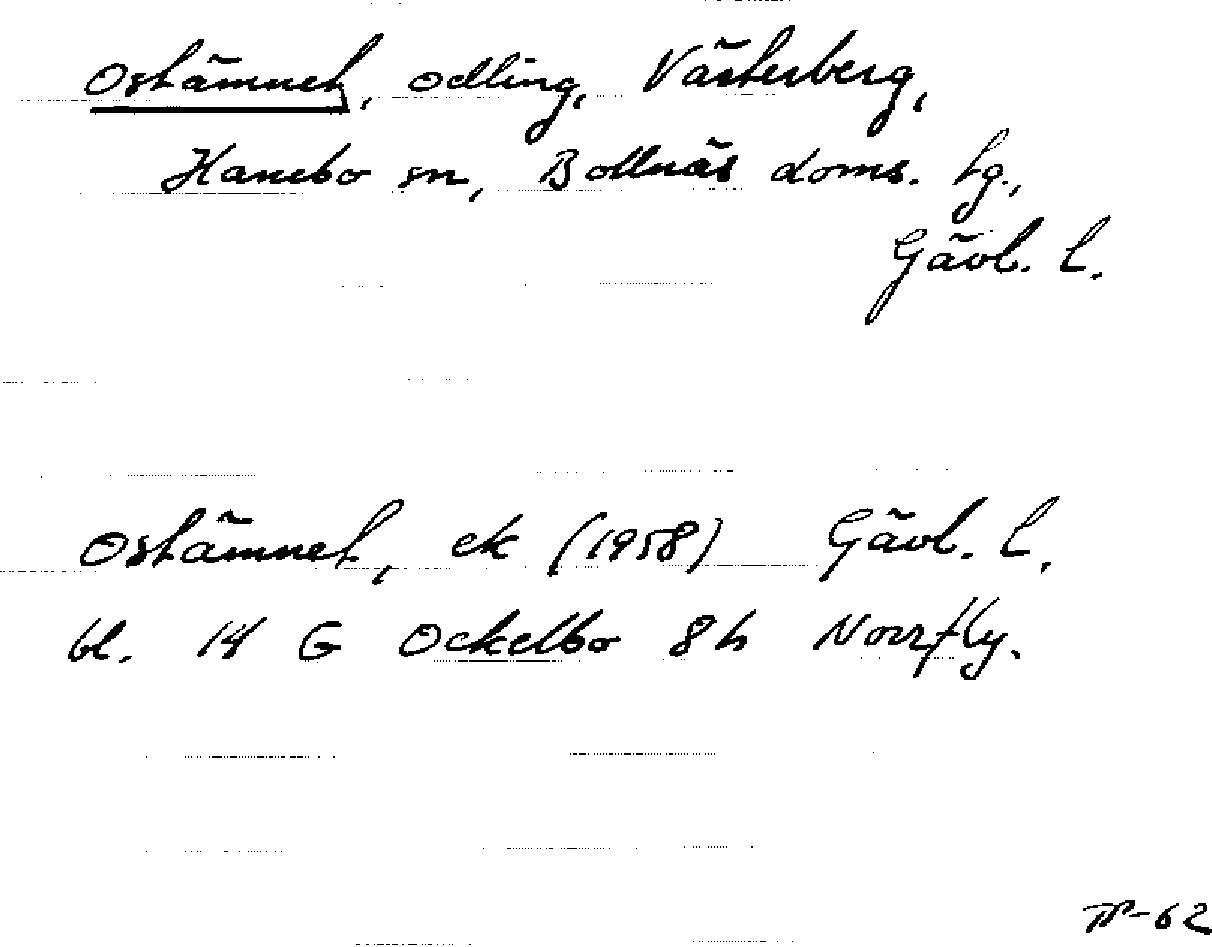 Ostämnet, odling, Västerberg,
Hanebo sn, Bollnäs doms. tg.,
Gävl. l.
Ostämnet, ek (1958) Gävl. l.
bl. 14 G Ockelbo 8h Norrfly.
-62